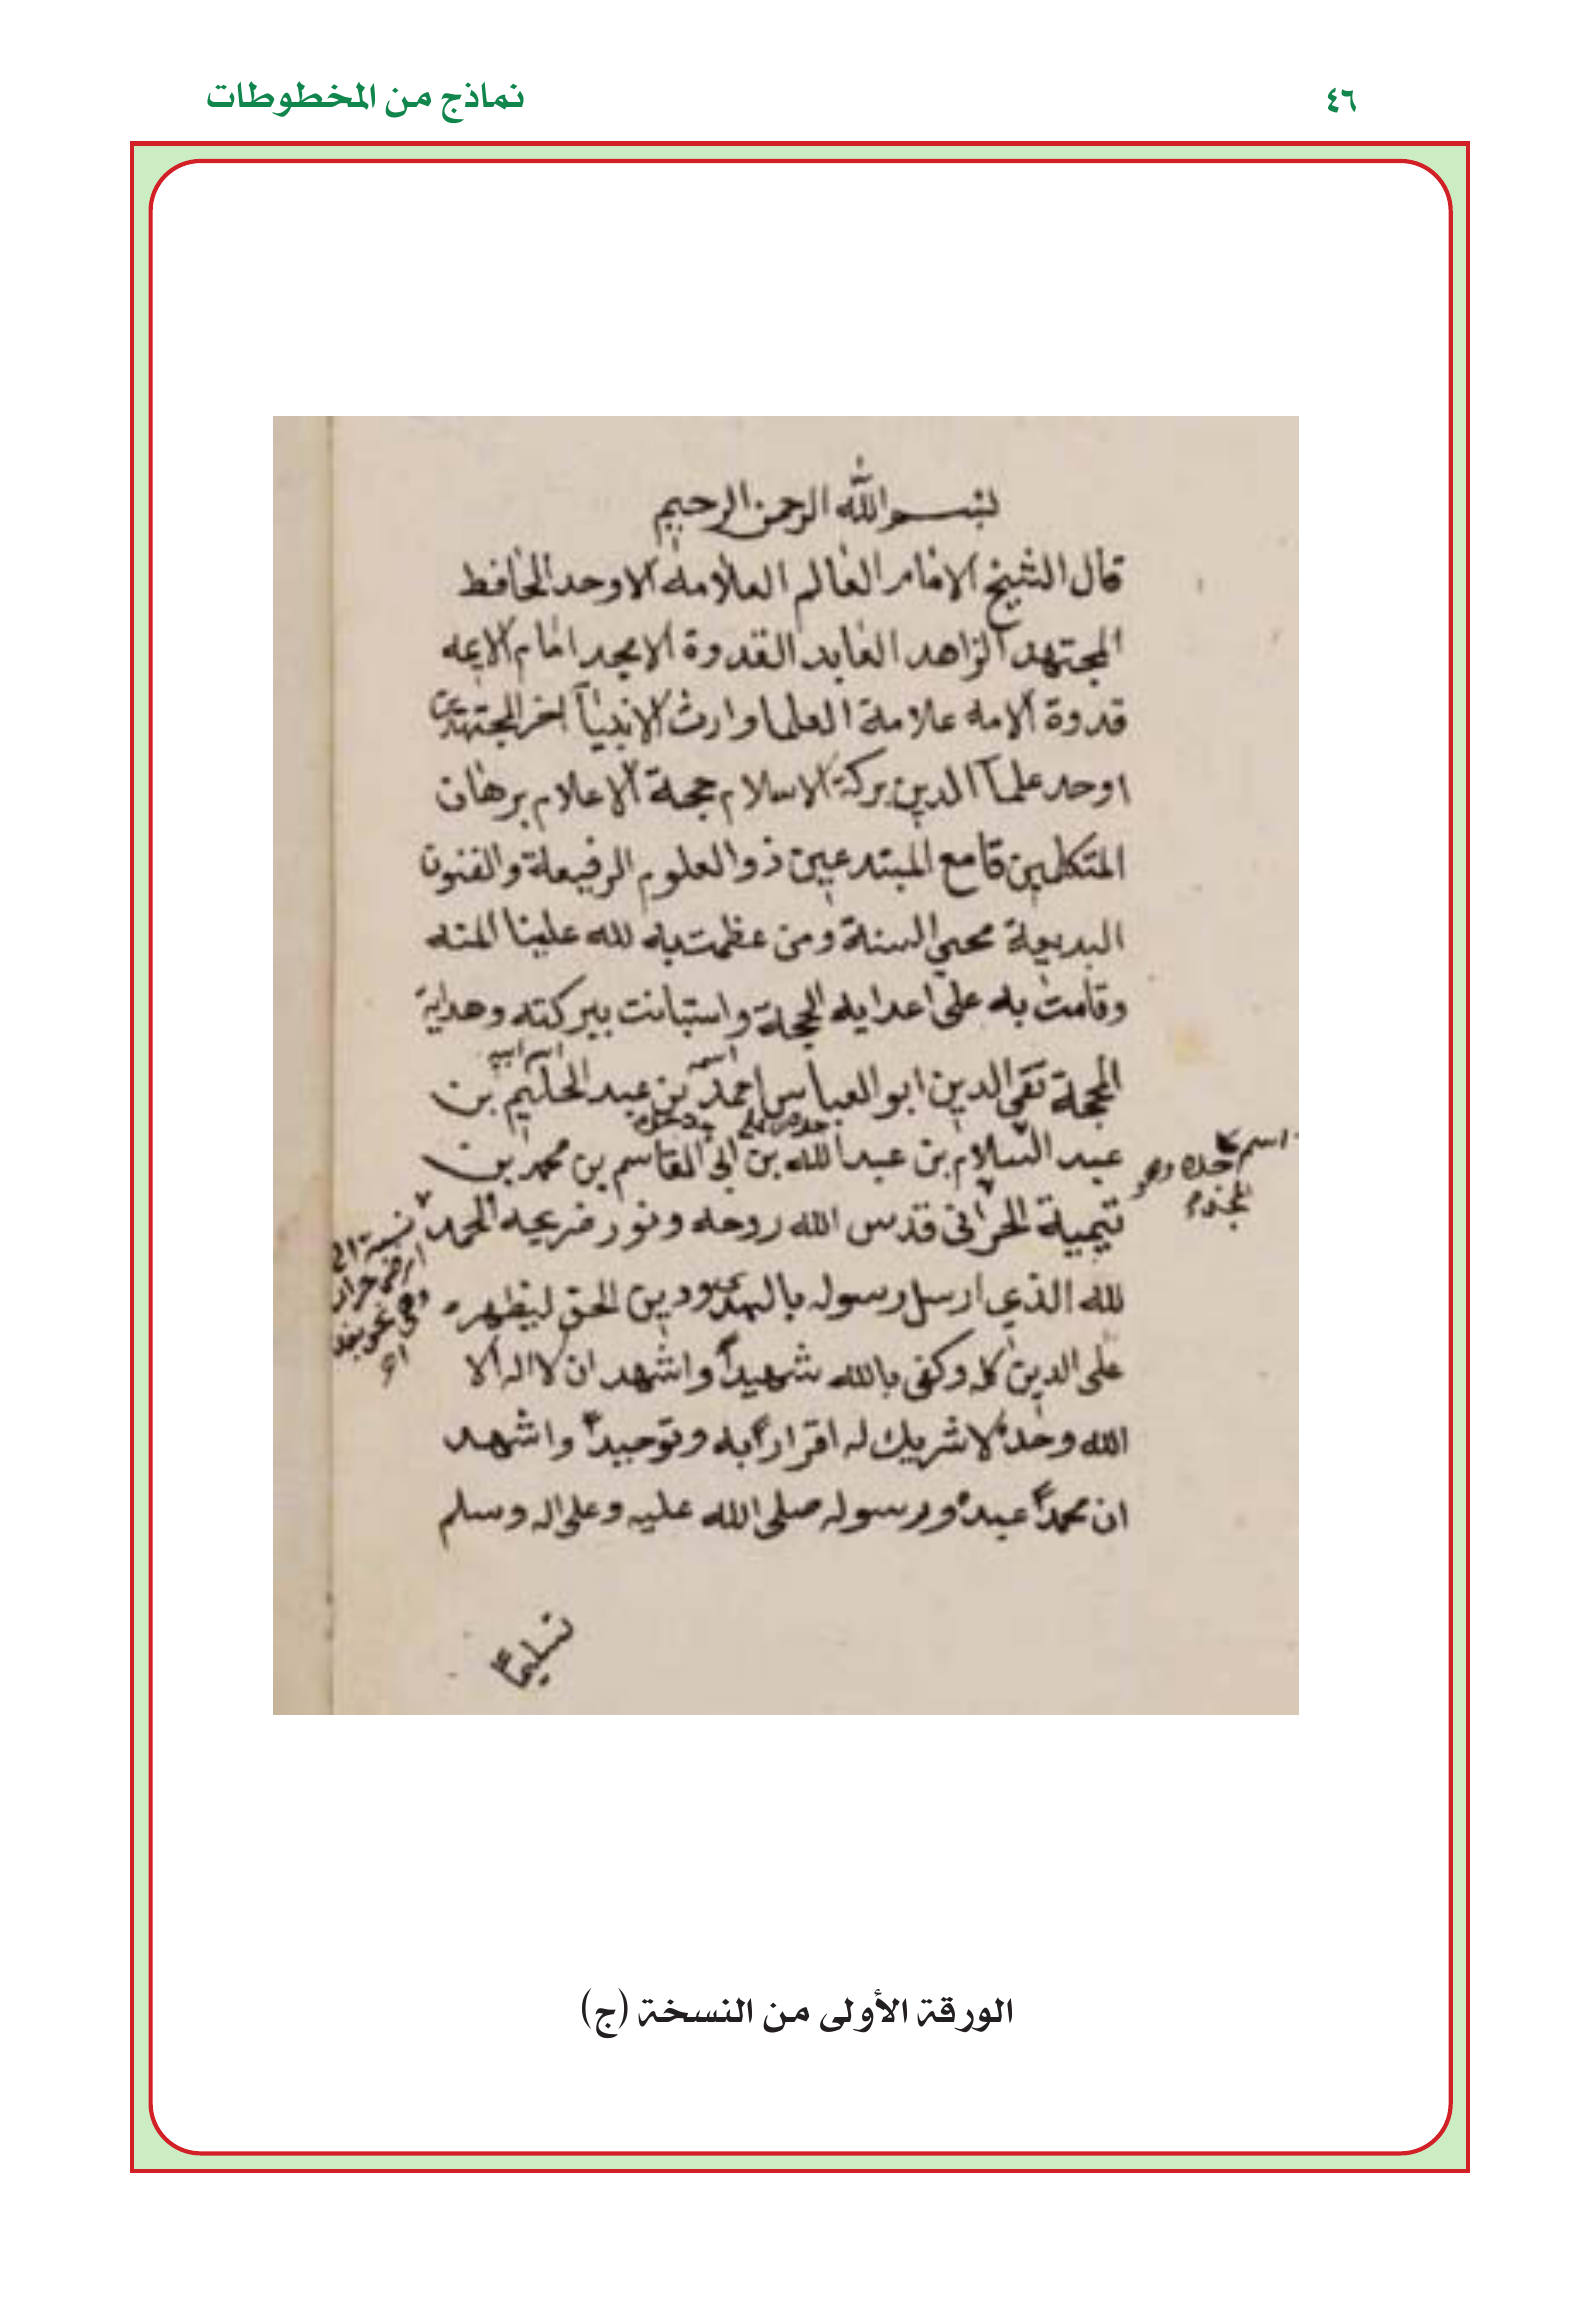 ٤٦
نماذج من المخطوطات
بسم الله الرحمن الرحيم
قال الشيخ الامام العالم العلامه الاوحد الحافظ
المجتهد الزاهد العابد القدوة الامجد امام الايمه
قدوة الامه علامة العلما وارث الانبيآ اخر المجتهدين
اوحد علمآ الدين بركة الاسلام حجة الاعلام برهان
المتكلمين قامع المبتدعين ذو العلوم الرفيعة والفنون
البديعة محيي السنة ومن عظمت به لله علينا المنه
وقامت به على اعدايه الحجة واستبانت ببركته وهداية
اسمه اسم ابيه
المحجة تقي الدين ابو العباس احمد بن عبد الحليم بن
عبد السلام بن عبد الله بن ابي القاسم بن محمد بن
اسم جده وهو
المجد
تيمية الحراني قدس الله روحه ونور ضريحه الحمد
نسبة الى
لله الذي ارسل رسوله بالهدى ودين الحق ليظهره
على الدين كله وكفى بالله شهيداً واشهد ان لا اله الا
الله وحده لا شريك له اقراراً به وتوحيداً واشهد
ان محمداً عبده ورسوله صلى الله عليه وعلى اله وسلم
تسليماً
الورقة الأولى من النسخة (ج)